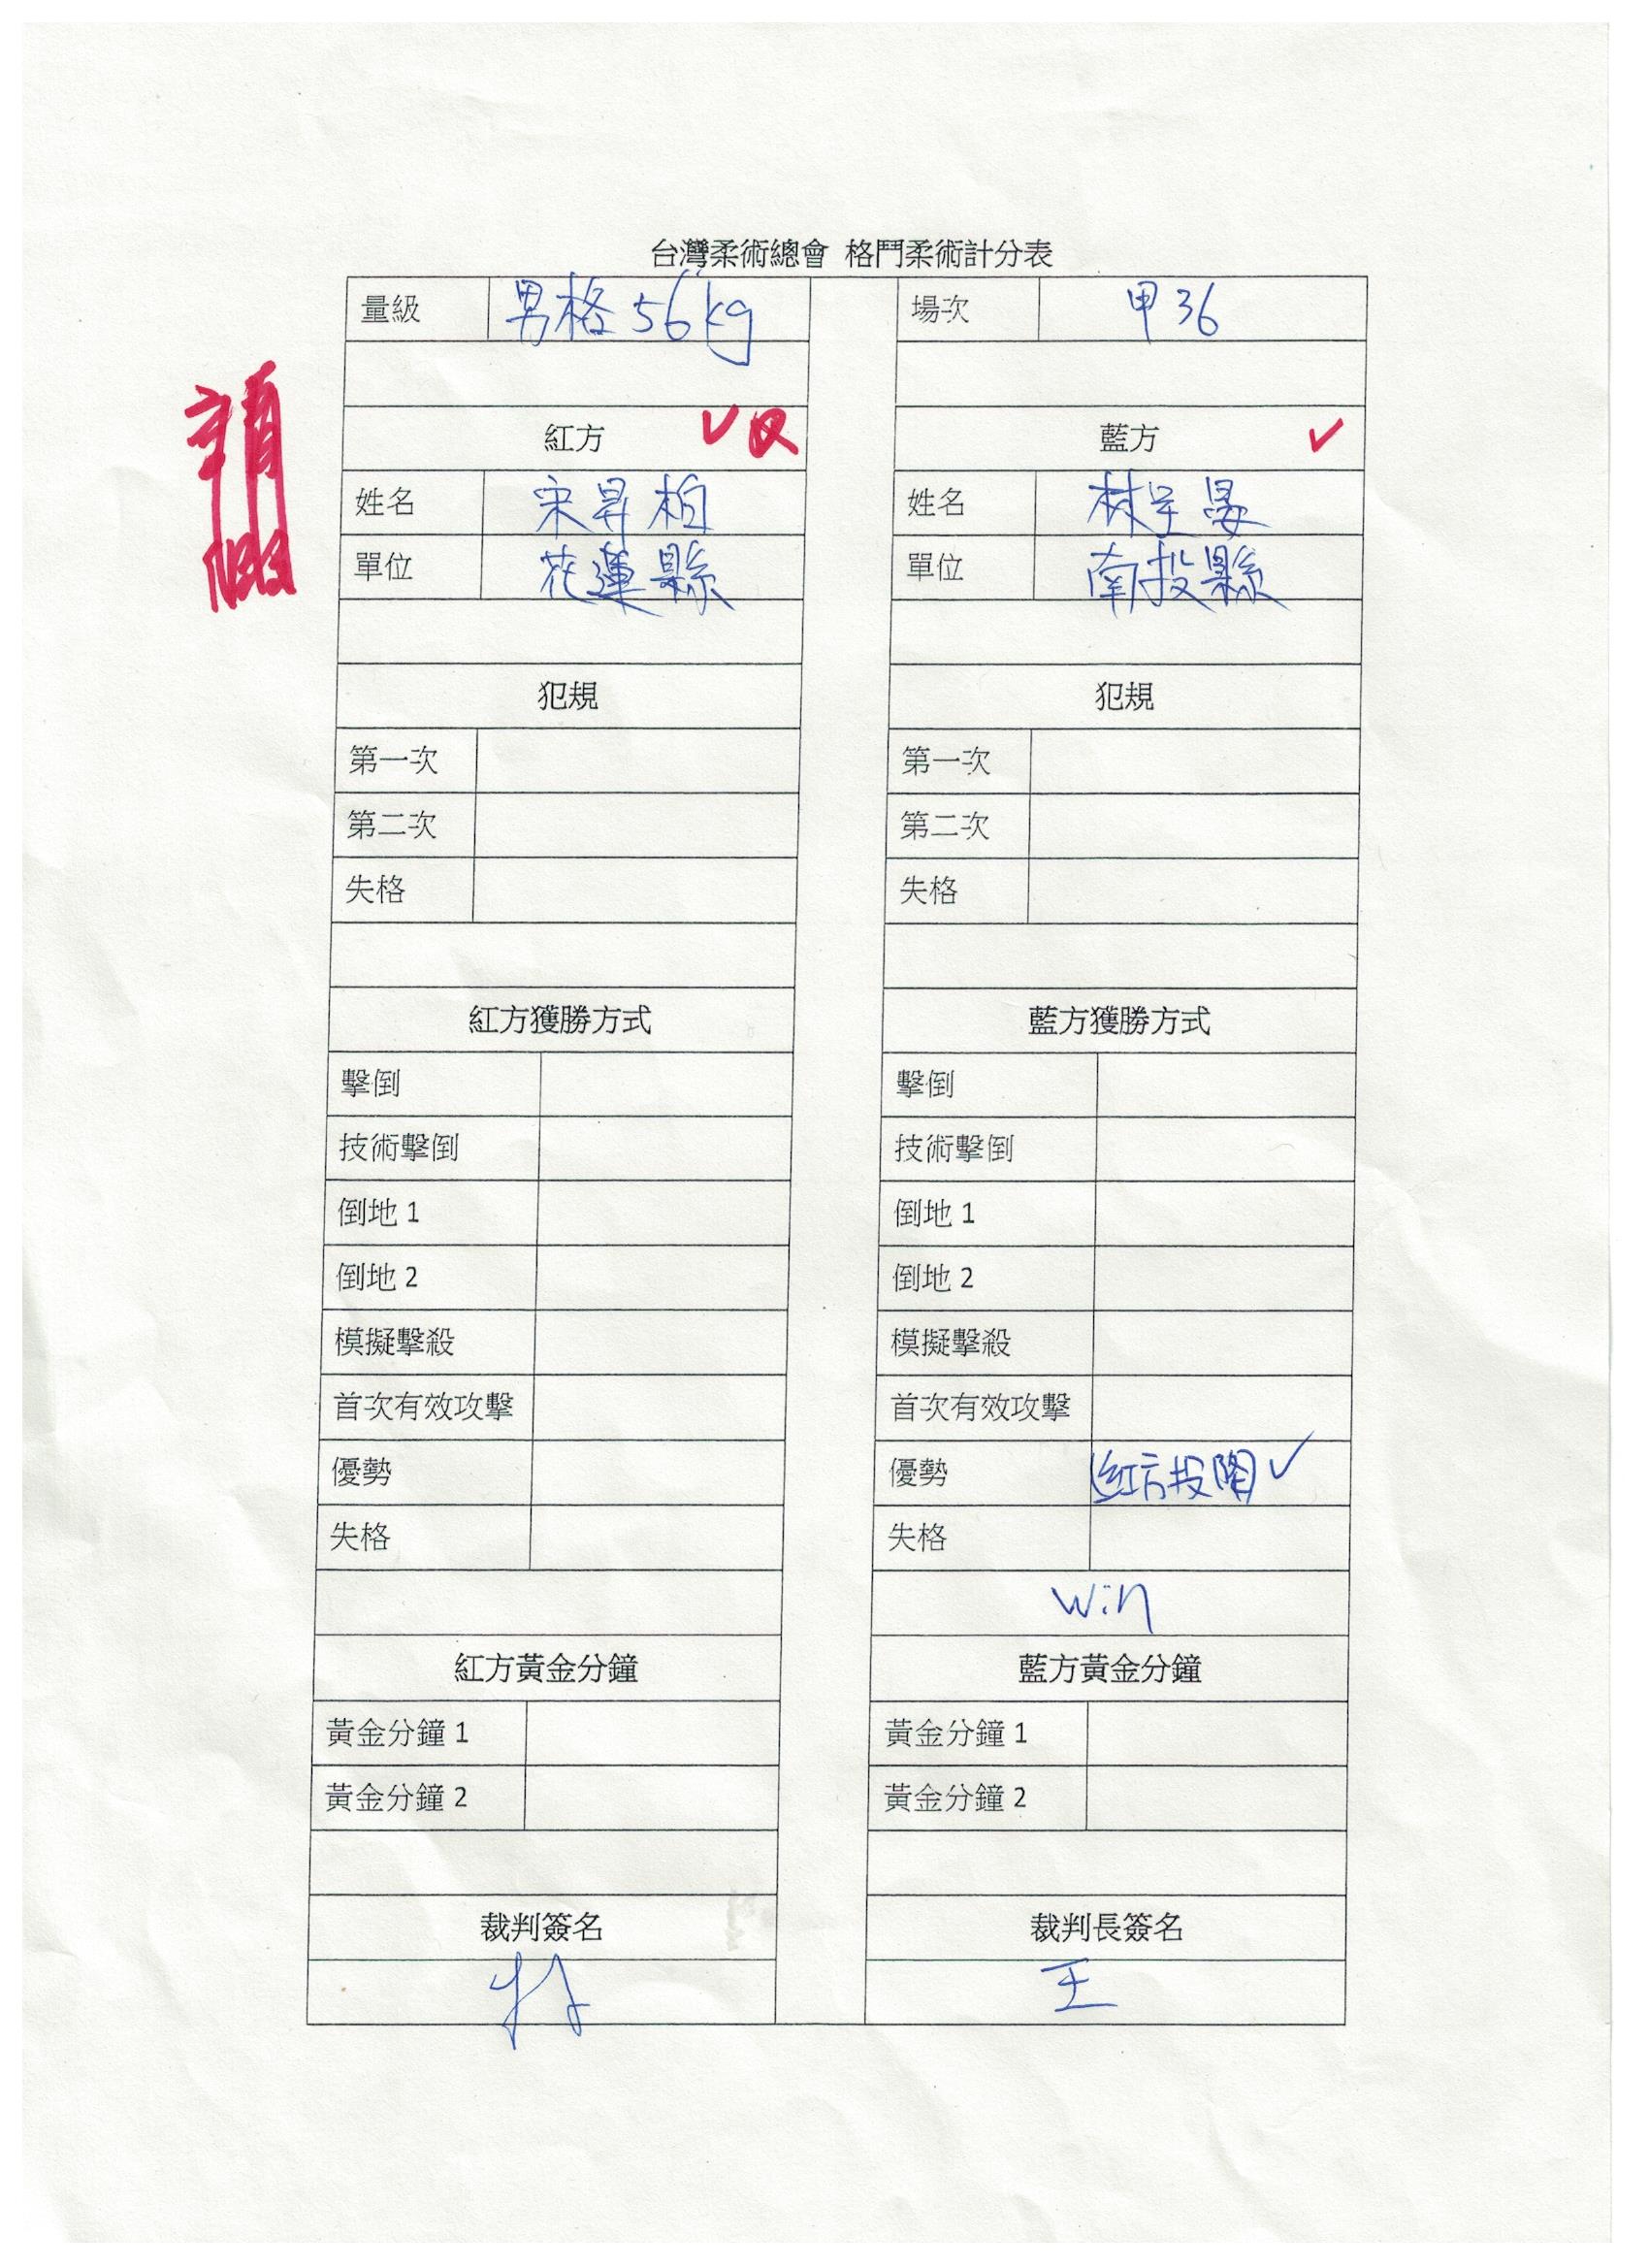 台灣柔術總會 格鬥柔術計分表
量級 男格56kg 場次 甲36
紅方 ✓ 藍方 ✓
姓名 宋昇柏 姓名 林宇晏
單位 花蓮縣 單位 南投縣
犯規 犯規
第一次 第一次
第二次 第二次
失格 失格
紅方獲勝方式 藍方獲勝方式
擊倒 擊倒
技術擊倒 技術擊倒
倒地1 倒地1
倒地2 倒地2
模擬擊殺 模擬擊殺
首次有效攻擊 首次有效攻擊
優勢 優勢 紅方投降 ✓
失格 失格
Win
紅方黃金分鐘 藍方黃金分鐘
黃金分鐘1 黃金分鐘1
黃金分鐘2 黃金分鐘2
裁判簽名 裁判長簽名
王